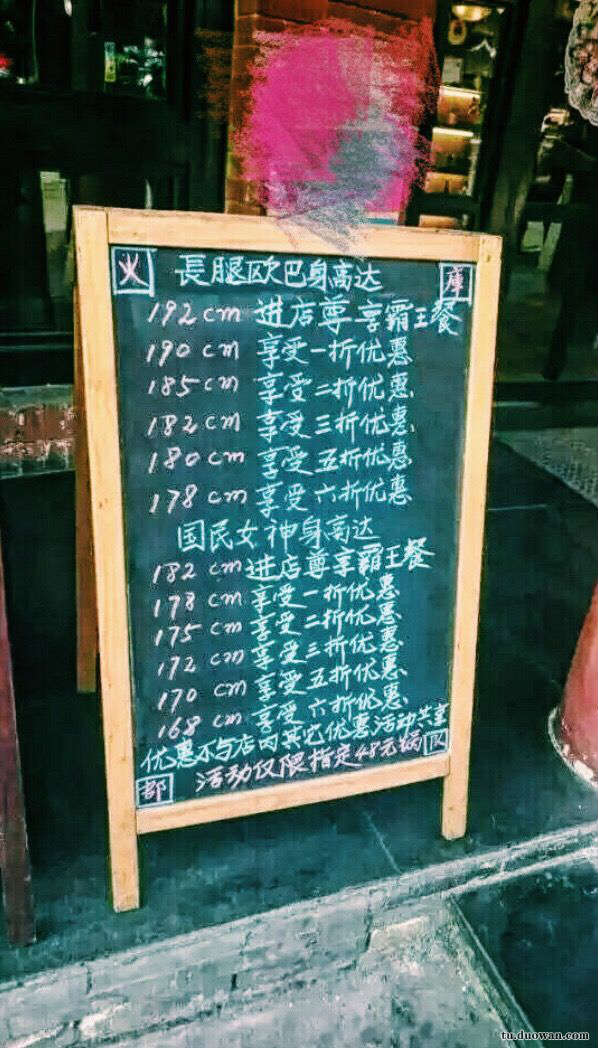 火
長腿欧巴身高达
庫
192cm 进店尊享霸王餐
190cm 享受一折优惠
185cm 享受二折优惠
182cm 享受三折优惠
180cm 享受五折优惠
178cm 享受六折优惠
国民女神身高达
182cm 进店尊享霸王餐
178cm 享受一折优惠
175cm 享受二折优惠
172cm 享受三折优惠
170cm 享受五折优惠
168cm 享受六折优惠
优惠不与店内其它优惠活动共享
部 活动仅限指定48元锅 队
tu.duowan.com